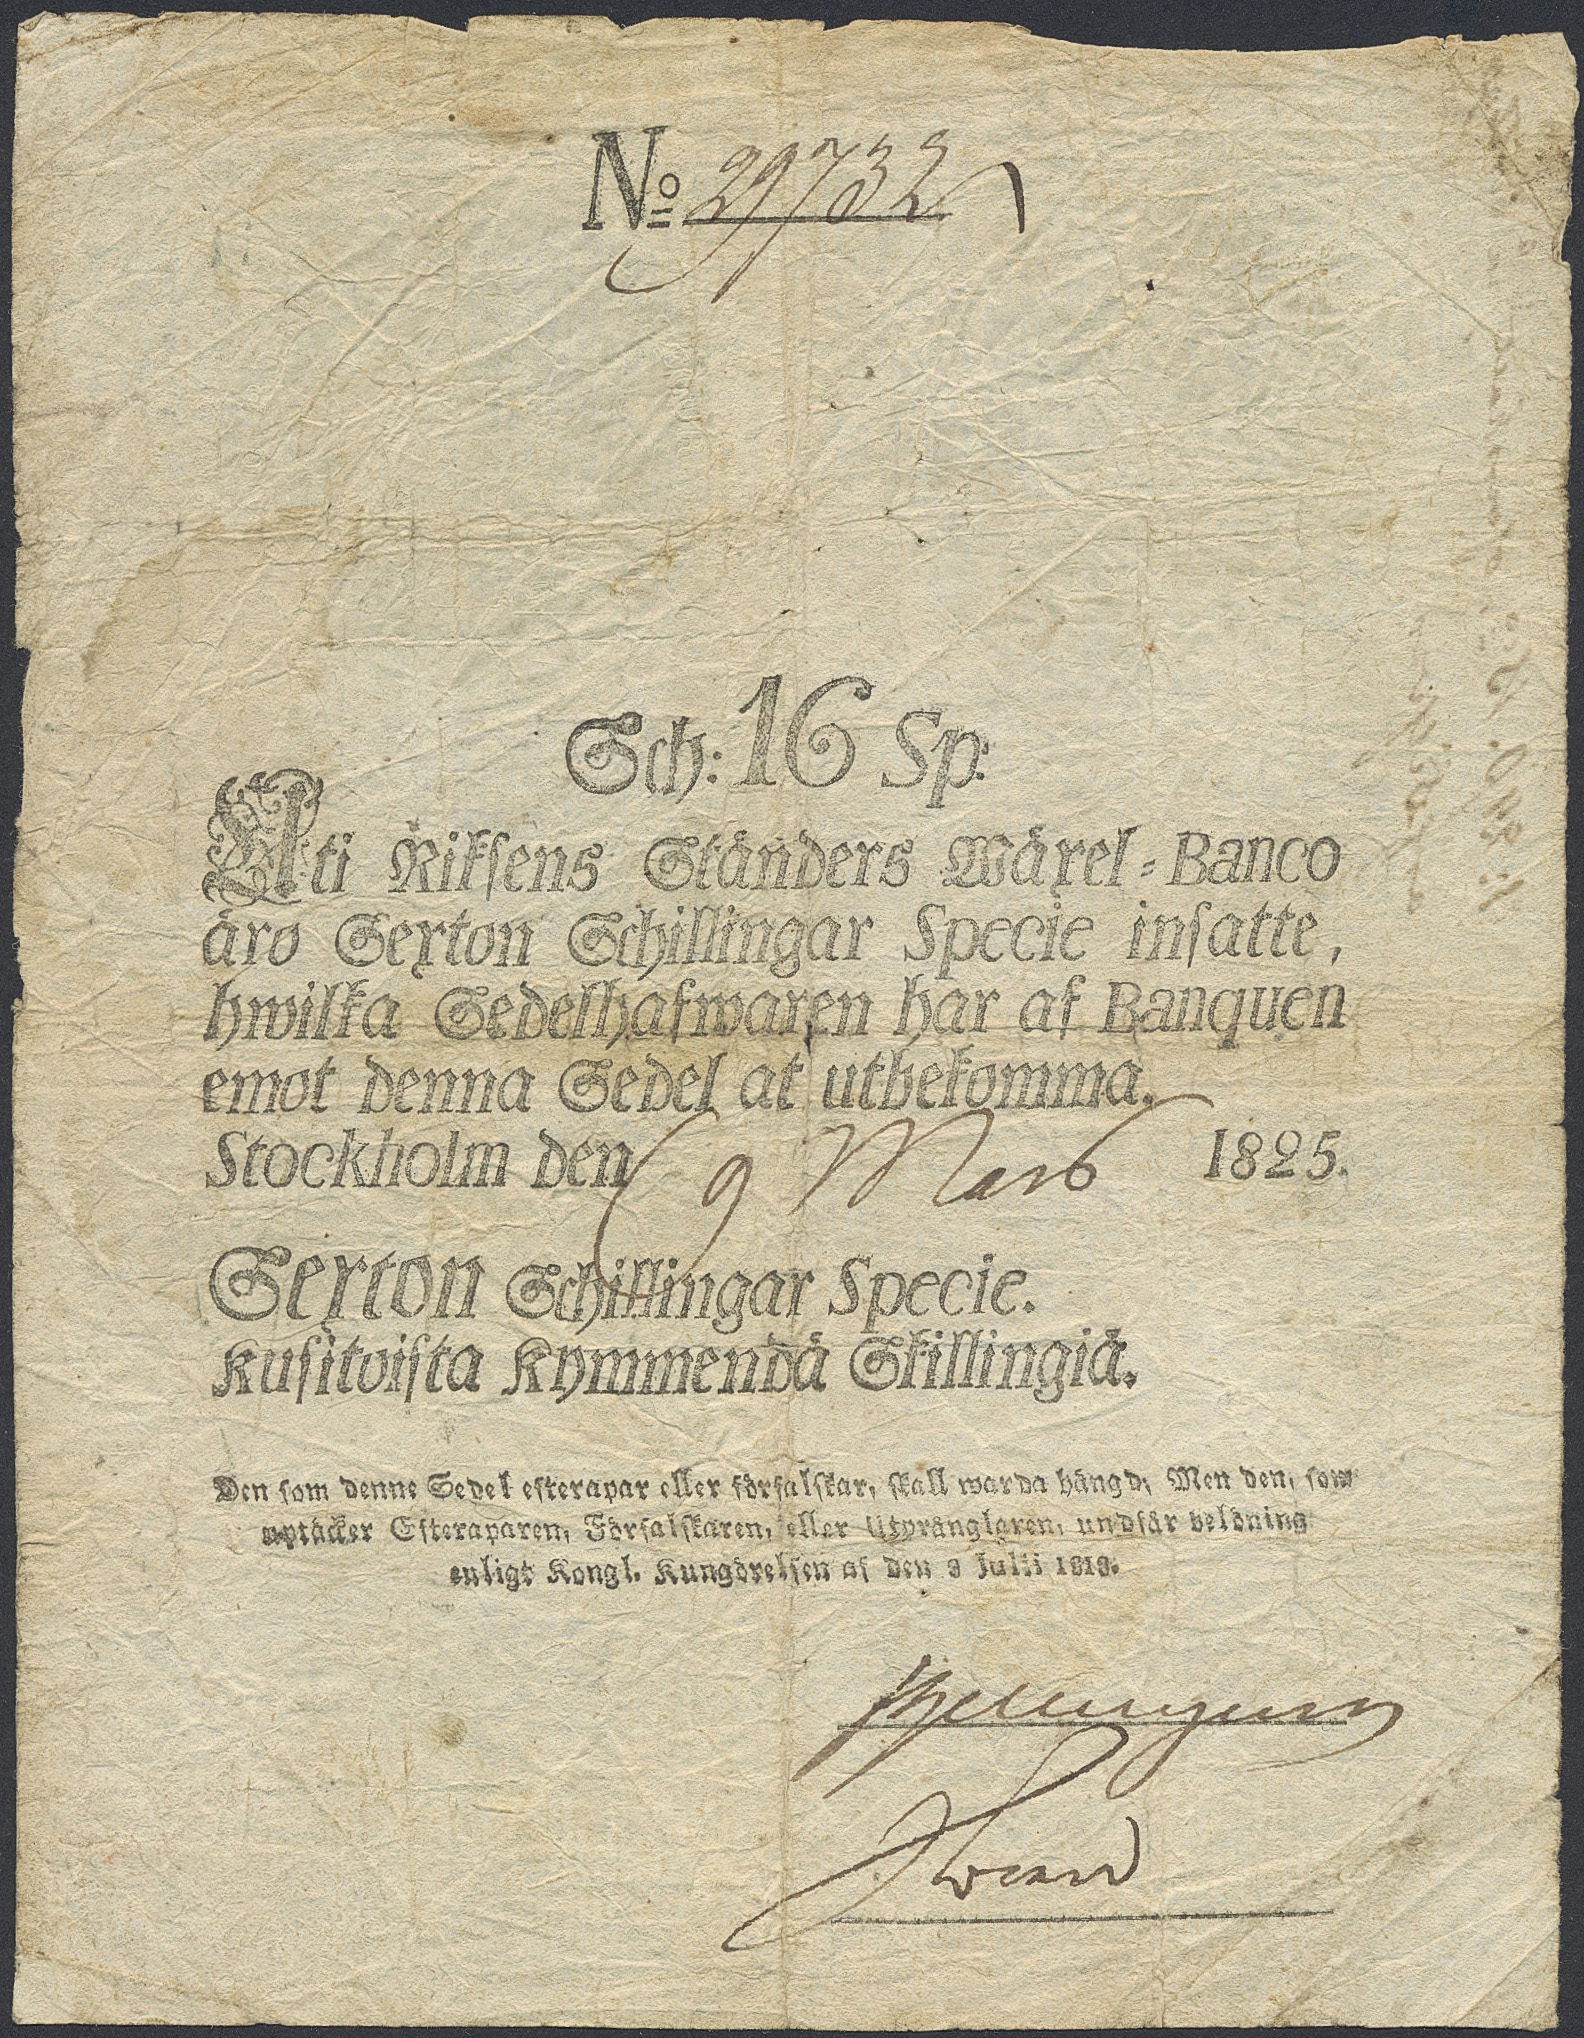 No 29732
Sch: 16 Sp:
Uti Riksens Ständers Wäxel-Banco
äro Sexton Schillingar Specie insatte,
hwilka Sedelhafwaren har af Banquen
emot denna Sedel at utbekomma.
Stockholm den 9 Mars 1825.
Sexton Schillingar Specie.
Kusitoista Kymmendä Skillingiä.
Den som denne Sedel efterapar eller förfalskar, skall warda hängd; Men den, som
uptäcker Efteraparen, Förfalskaren, eller Utprånglaren, undfår belöning
enligt Kongl. Kungörelsen af den 8 Julii 1818.